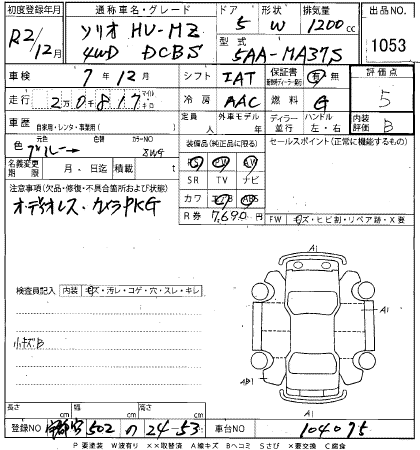 初度登録年月 通称車名・グレード ドア 形状 排気量 出品NO
R2/12月 ソリオ HV-MZ 4WD DCBS 5 W 1200cc 1053
型式 5AA-MA37S
車検 7年12月 シフト IAT 保証書 有 無 評価点
走行 2万0千817 マイル キロ 冷房 AAC 燃料 G 5
車歴 自家用・レンタ・事業用( ) 定員 人 外車モデル 年 ディーラー 並行 ハンドル 左・右 内装評価 B
色 グレー 色替 カラーNO 装備品(純正品に限る) セールスポイント(正常に機能するもの)
名義変更期限 月 日迄 積載 t
SR TV ナビ
注意事項(欠品・修復・不具合箇所および状態) カワ ABS
オーディオレス・カメラPKG R券 7,690円
FW キズ・ヒビ割・リペア跡・X要
検査員記入 内装 キズ・汚レ・コゲ・穴・スレ・キレ
A1
A1
小キズB
長さ cm 幅 cm 高さ cm
登録NO 502 の 24-53 車台NO 104075
P 要塗装 W波有り ××取替済 A線キズ Bヘコミ Sさび ×要交換 C腐食